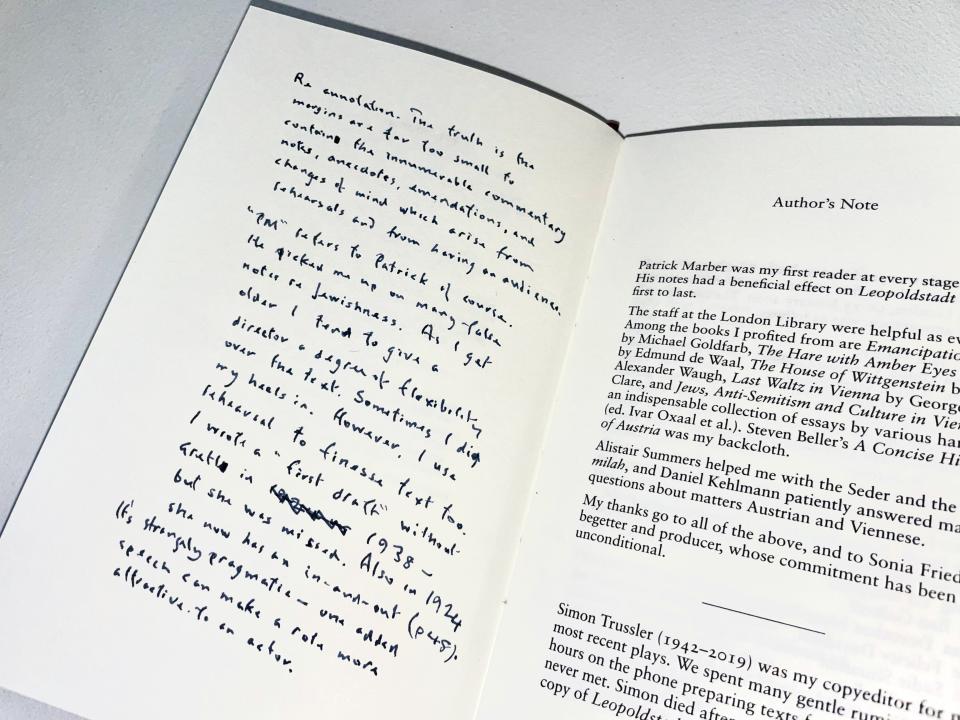 Re annotation. The truth is the
margins are far too small to
contain the innumerable commentary
notes, anecdotes, emendations, and
changes of mind which arise from
rehearsals and from having an audience.
"PM" refers to Patrick of course.
He picked me up on many false
notes re Jewishness. As I get
older I tend to give a
director a degree of flexibility
over the text. Sometimes I dig
my heels in. However, I use
rehearsal to finesse text too.
I wrote a "first draft" without
Gretl in 1938 –
but she was missed. Also in 1924
she now has an in-and-out (p48).
It's strangely pragmatic – one added
speech can make a role more
attractive to an actor.
Author's Note
Patrick Marber was my first reader at every stage
His notes had a beneficial effect on Leopoldstadt
first to last.
The staff at the London Library were helpful as ev
Among the books I profited from are Emancipatio
by Michael Goldfarb, The Hare with Amber Eyes
by Edmund de Waal, The House of Wittgenstein b
Alexander Waugh, Last Waltz in Vienna by George
Clare, and Jews, Anti-Semitism and Culture in Vie
an indispensable collection of essays by various han
(ed. Ivar Oxaal et al.). Steven Beller's A Concise Hi
of Austria was my backcloth.
Alistair Summers helped me with the Seder and the
milah, and Daniel Kehlmann patiently answered ma
questions about matters Austrian and Viennese.
My thanks go to all of the above, and to Sonia Fried
begetter and producer, whose commitment has been
unconditional.
Simon Trussler (1942–2019) was my copyeditor for m
most recent plays. We spent many gentle rumi
hours on the phone preparing texts f
never met. Simon died after
copy of Leopoldstad